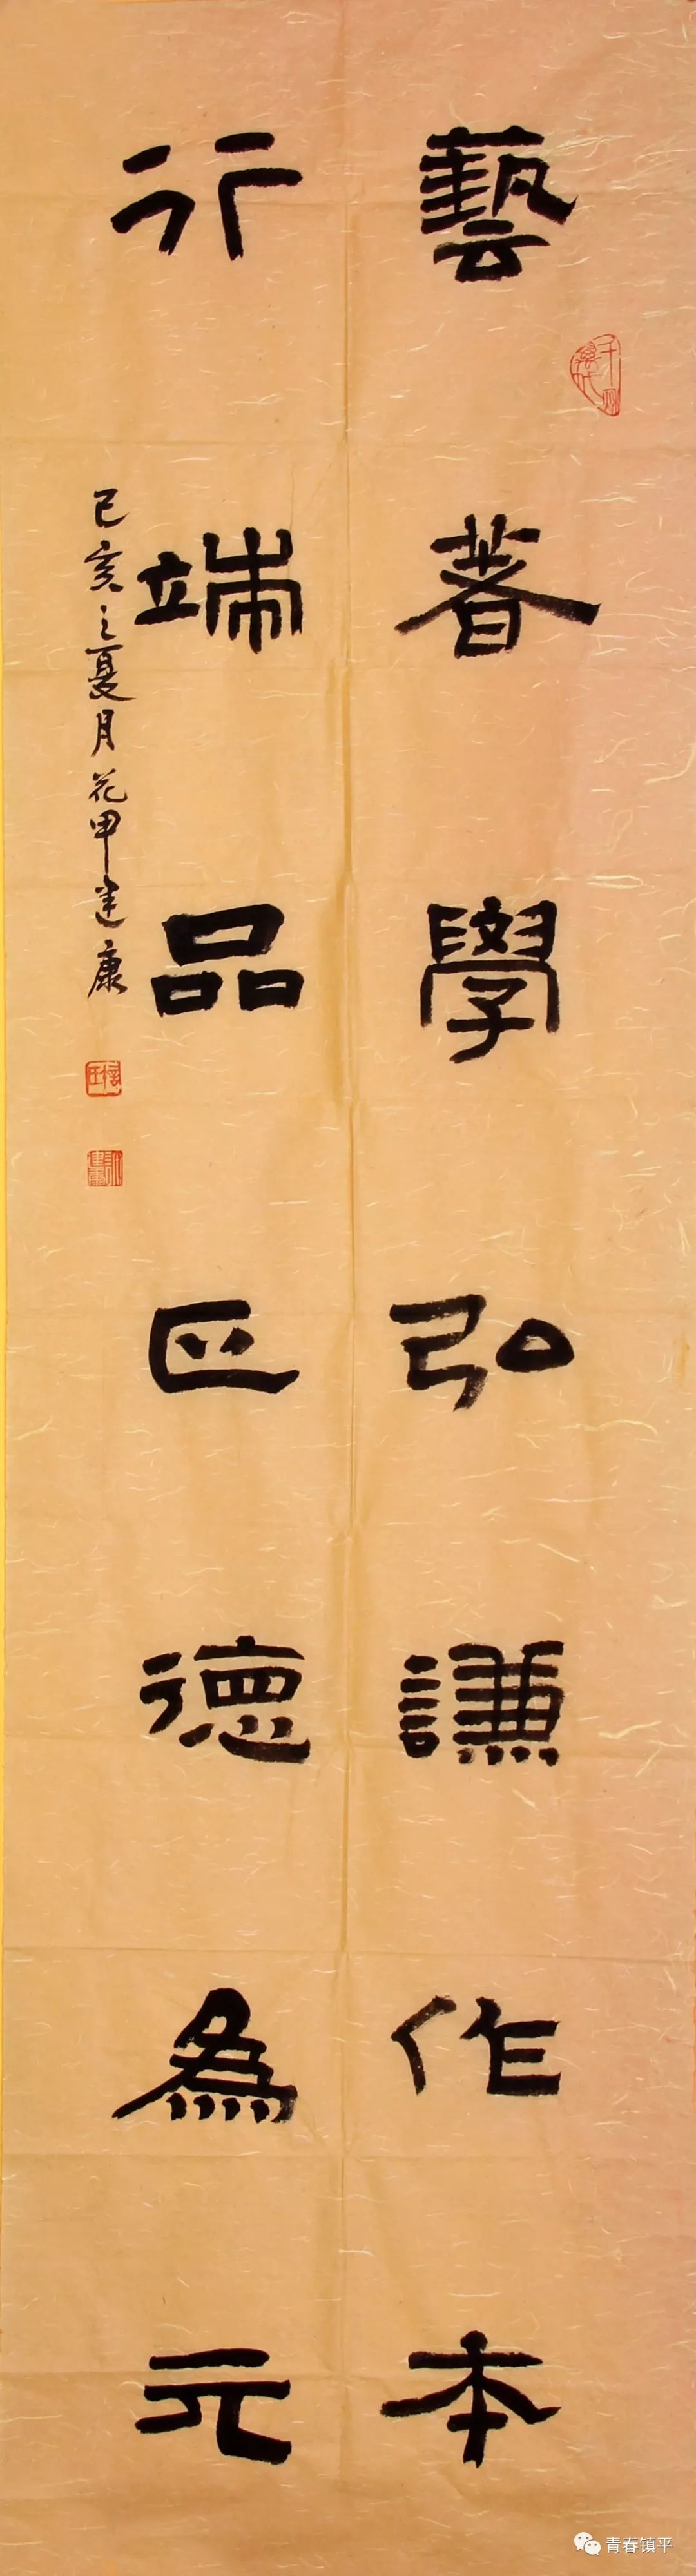 藝著學弘謙作本
行端品正德為元
己亥之夏月花甲建康
青春镇平